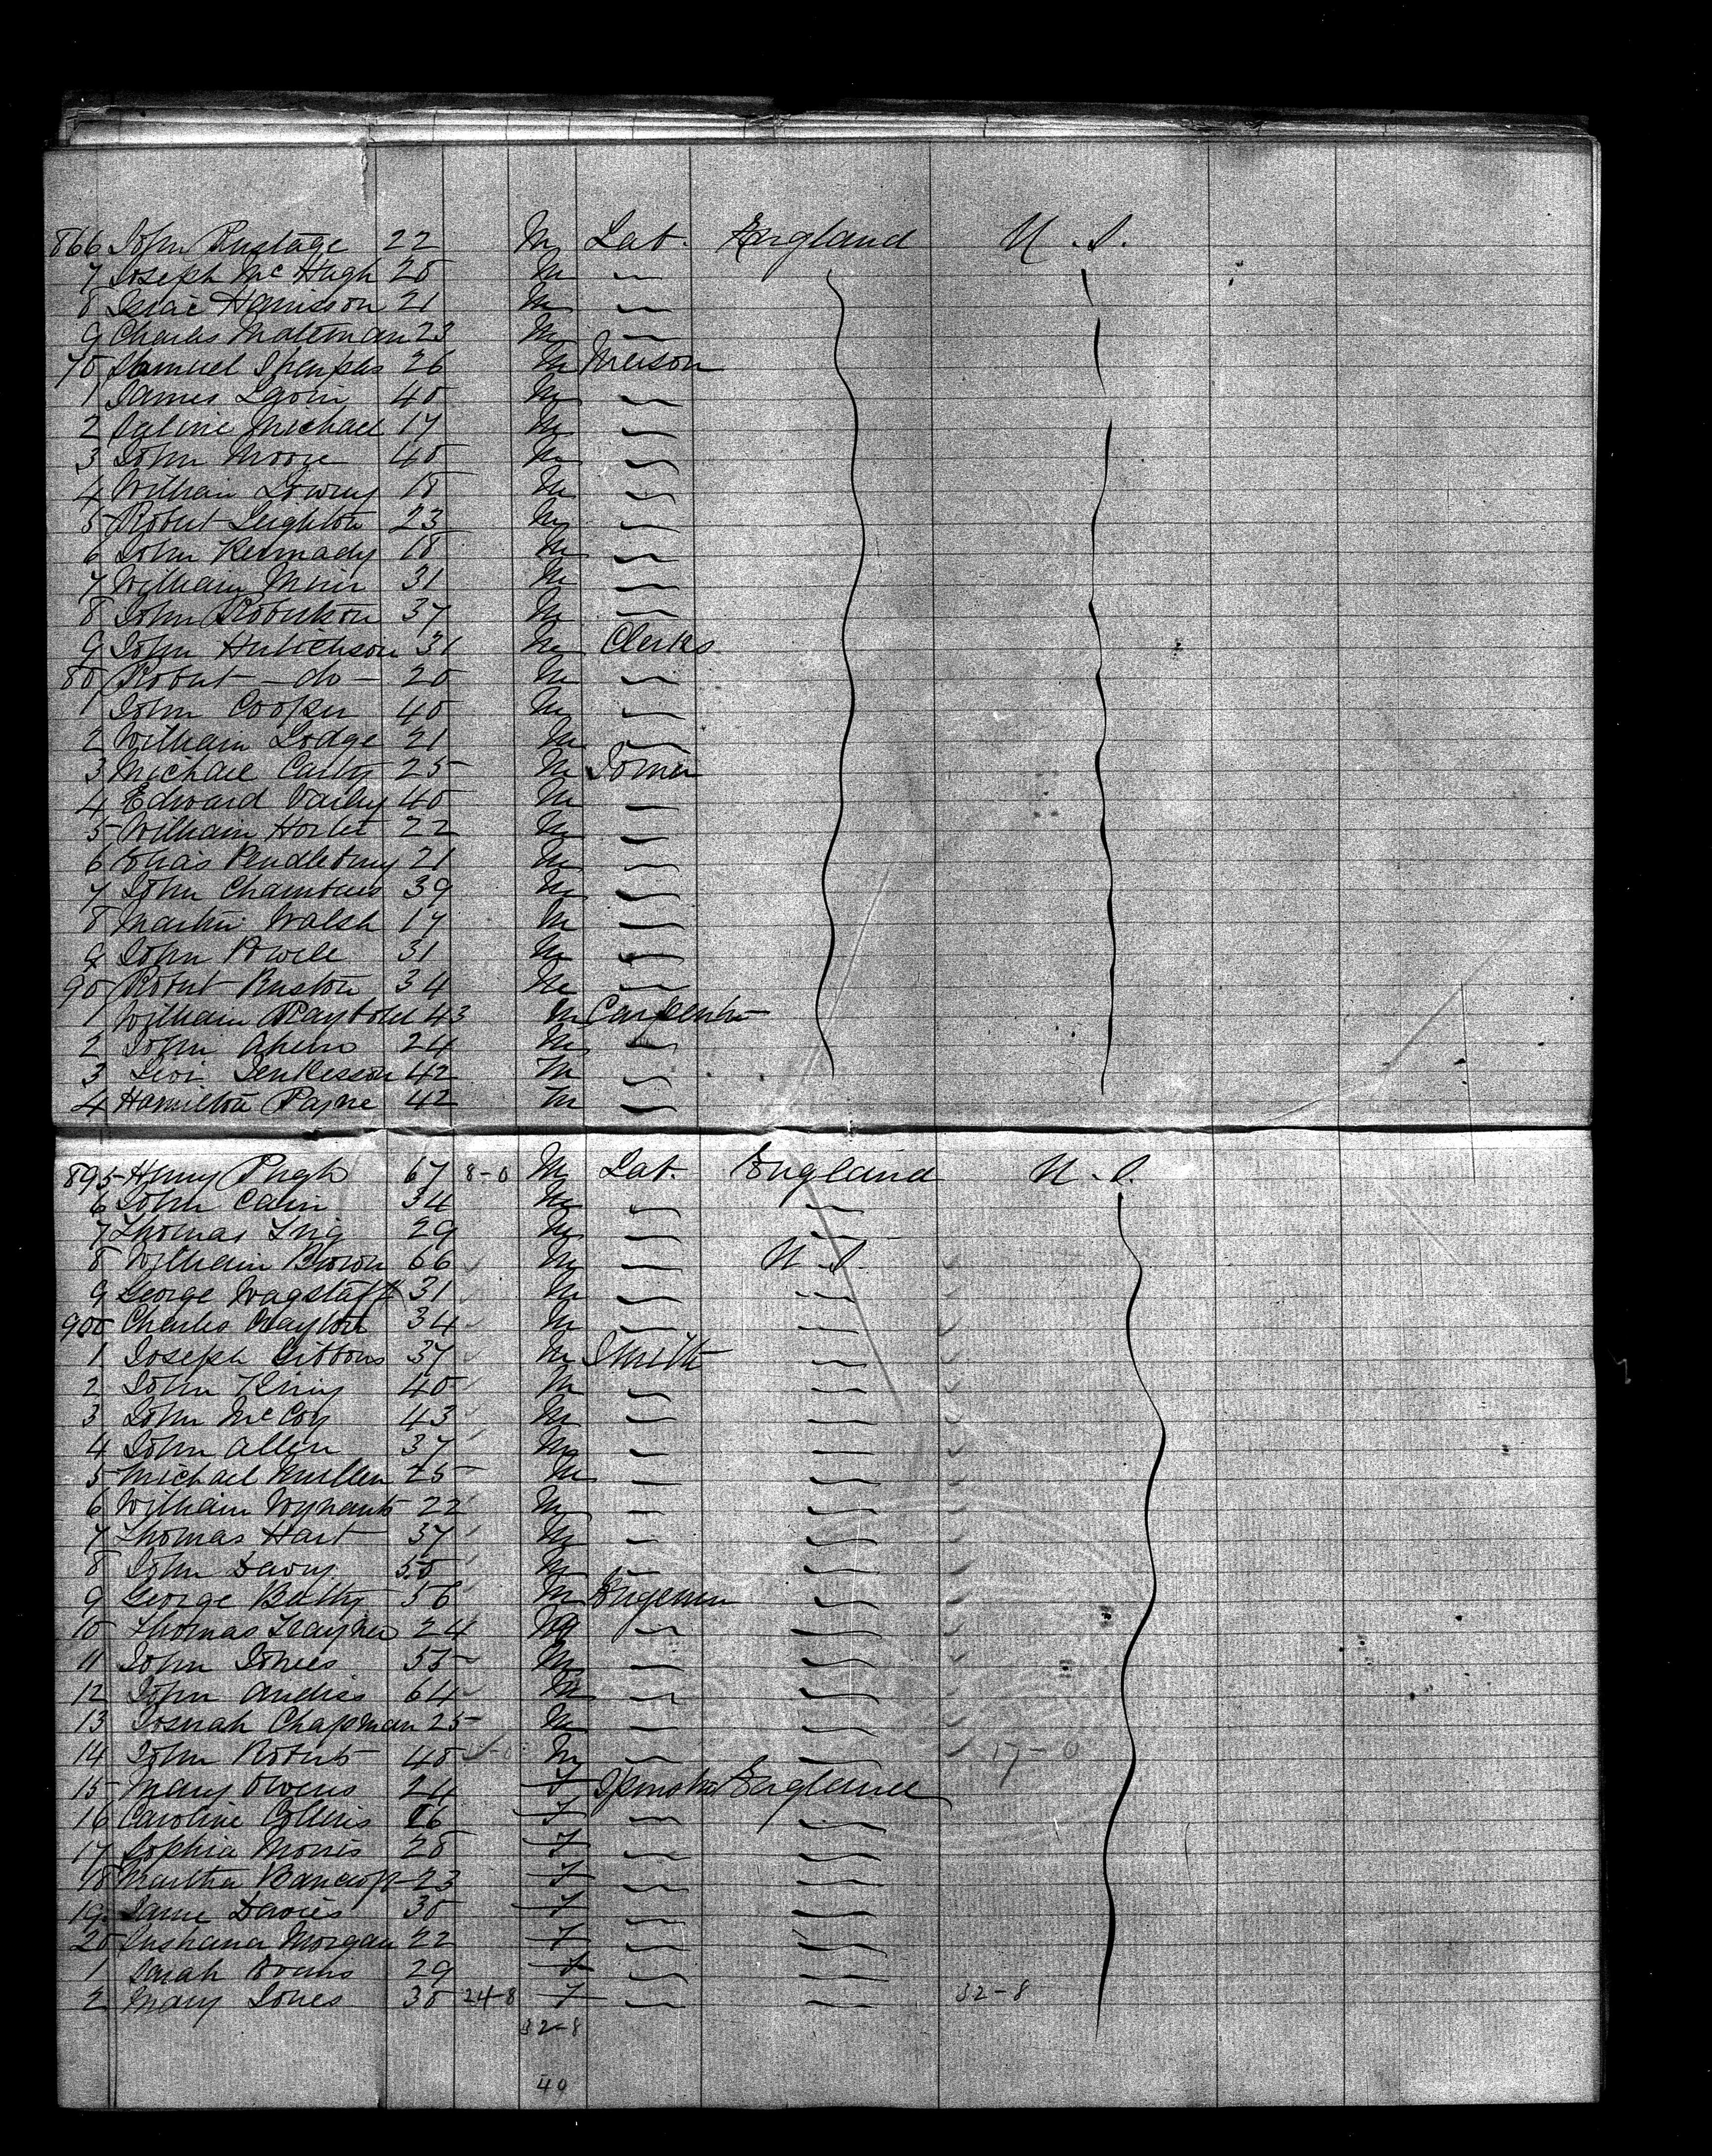 866 John Rustage 22 M Lab. England U.S.
7 Joseph Mc Hugh 20 M
8 Isaac Harrisson 21 M
9 Charles 23 M
70 Samuel 26 M Mason
1 James Lavin 40 M
2 Michael 17 M
3 John Moore 40 M
4 William Lowry 18 M
5 Robert Leighton 23 M
6 John Kennady 18 M
7 William Muir 31 M
8 John Robertson 37 M
9 John Hutichson 31 M Clerks
80 Robert — do — 20 M
1 John Cooper 40 M
2 William Lodge 21 M
3 Michael 25 M Joiner
4 Edward Varley 40 M
5 William 22 M
6 Pendlebury 21 M
7 John Chambers 39 M
8 Martin Walsh 17 M
9 John Powell 31 M
90 Robert Ruston 34 M
1 William Raybold 43 M Carpenter
2 John Ahern 24 M
3 Levi Jenkesson 42 M
4 Hamilton Payne 42 M
895 Henry Pugh 67 8-0 M Lab. England U.S.
6 John Cahin 34 M
7 Thomas 29 M
8 William Brown 66 M U.S.
9 George Wagstaff 31 M
900 Charles Clayton 34 M
1 Joseph Gibbons 37 M Smith
2 John King 40 M
3 John McCoy 43 M
4 John Allen 37 M
5 Michael Mullen 25 M
6 William Wynants 22 M
7 Thomas Hart 37 M
8 John Davy 50 M
9 George Batty 56 M Engeneer
10 Thomas Traynor 24 M
11 John Jones 55 M
12 John Andies 64 M
13 Josuah Chapman 25 M
14 John Roberts 40 M 17-0
15 Mary Owens 24 F Spinster England
16 Caroline Collins 26 F
17 Sophia Morris 20 F
18 Martha Bancroft 23 F
19 Jane Davies 30 F
20 Morgan 22 F
1 Sarah Evans 29 F
2 Mary Jones 30 24-8 F 32-8
32-8
40